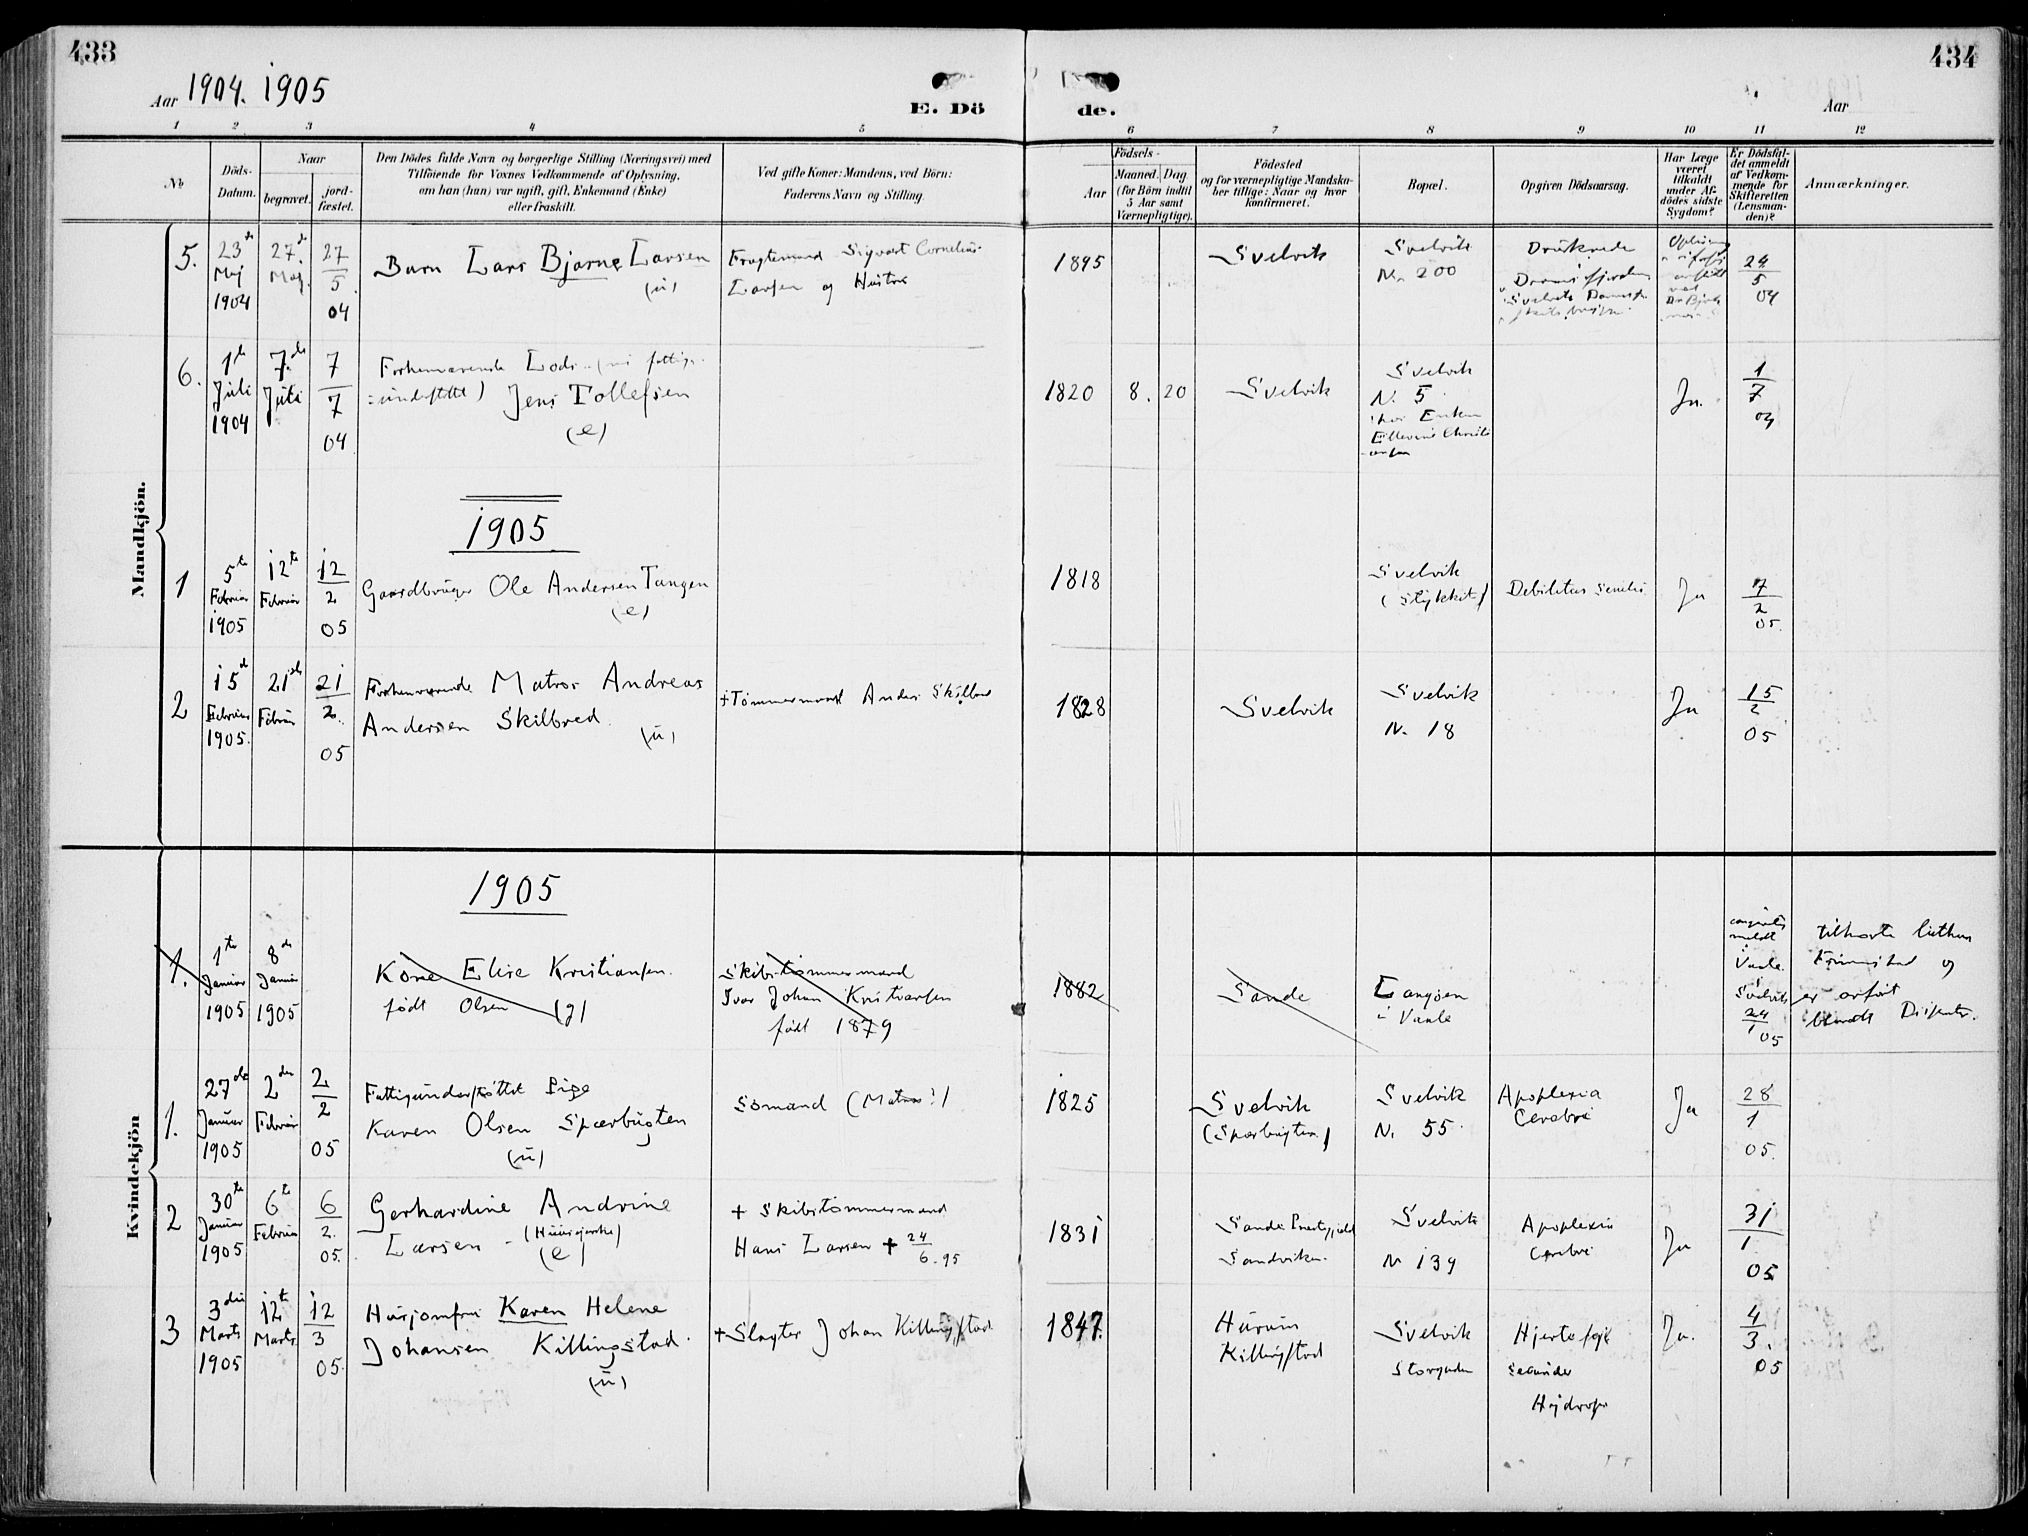 433
434
Aar 1904. 1905
E. Dö de.
Aar
1 2 3 4 5 6 7 8 9 10 11 12
No
Döds-
Datum.
Naar
begravet.
jord-
fæstet.
Den Dödes fulde Navn og borgerlige Stilling (Næringsvei) med
Tilföiende for Voxnes Vedkommende af Oplysning,
om han (hun) var ugift, gift, Enkemand (Enke)
eller fraskilt.
Ved gifte Koner: Mandens, ved Börn:
Faderens Navn og Stilling.
Födsels-
Aar
Maaned. Dag
(for Börn indtil
5 Aar samt
Værnepligtige).
Födested
og for værnepligtige Mandska-
ber tillige: Naar og hvor
konfirmeret.
Bopæl.
Opgiven Dödsaarsag.
Har Læge
været
tilkaldt
under Af-
dödes sidste
Sygdom?
Er Dödsfal-
det anmeldt
af Vedkom-
mende for
Skifteretten
(Lensman-
den)?
Anmærkninger.
Mandkjön.
5.
23de
Maj
1904
27de
Maj
27
5
04
Barn Lars Bjarne Larsen
(u)
Fragtemand Sigvart Cornelius
Larsen og Hustru
1895
Svelvik
Svelvik
N. 200
Druknede
24
5
04
6.
1de
Juli
1904
7de
Juli
7
7
04
Forhenværende Lods (nu fattig-
understøttet) Jens Tollefsen
(e)
1820 8. 20
Svelvik
Svelvik
N. 5
hos Enken
Ellevine Christi
ansen
Ja.
1
7
04
1905
1
5te
Februar
1905
12te
Februar
12
2
05
Gaardbruger Ole Andersen Tangen
(e)
1818
Svelvik
Debilitas senilis
Ja
7
2
05.
2
15de
Februar
1905.
21de
Februar
21
2.
05
Forhenværende Matros Andreas
Andersen Skilbred
(u)
+Tømmermand Anders Skilbred
1828
Svelvik
Svelvik
N. 18
Ja
15
2
05
Kvindekjön
1905
1.
1te
Januar
1905
8de
Januar
1905
Kone Elise Kristiansen.
født Olsen (g)
Skibstømmermand
Ivar Johan Kristiansen
født 1879
1882
Sande
Langøen
i Vaale
meldt
i
Vaale.
Svelvik
24
1
05
tilhørte luthersk
Frimenighed og
er anført
blandt Dissenter.
1.
27de
Januar
1905
2den
Februar
2
2
05
Fattigunderstøttet Pige
Karen Olsen Sparbugten
(u)
Sømand (Matros?)
1825
Svelvik
(Sparbugten)
Svelvik
N. 55
Apoplexia
Cerebri
Ja
28
1
05.
2
30te
Januar
1905
6te
Februar
6
2.
05.
Gerhardine Andrine
Larsen (Huusejerske)
(e)
+ Skibstømmermand
Hans Larsen + 24
6. 95
1831
Sande Præstegjeld
Sandviken.
Svelvik
N 139
Apoplexia
Cerebri
Ja
31
1
05
3
3die
Marts
1905
12te
Marts.
12
3
05.
Husjomfru Karen Helene
Johansen Killingstad.
(u)
+Slagter Johan Killingstad
1847.
Hurum
Killingstad
Svelvik
Storgaden
Hjertefejl
secunder
Hydrops
Ja.
4
3.
05